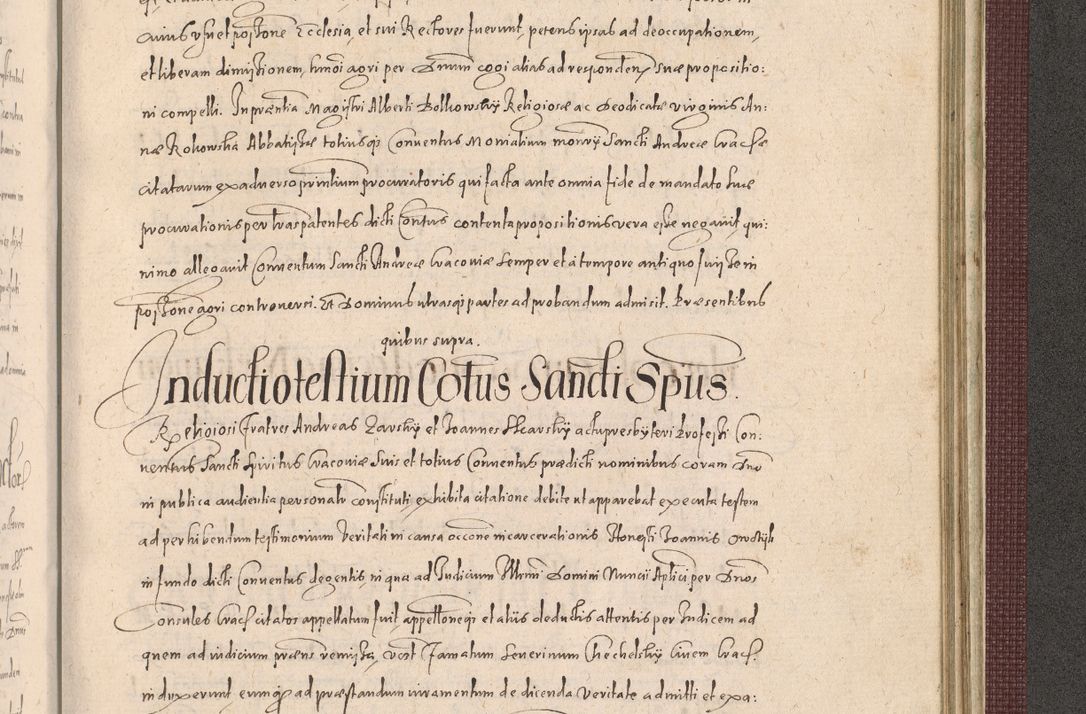 cuius usu et poss͞one Ecclesia, et sui Rectores fuerunt, petens ipsas ad deoccupationem,
et liberam dimissionem, hm̃oi agri per Dnum cogi alias ad respondend suæ propositio:
ni compelli. In præntia Magistri Alberti Bolkowsky Religiosæ ac Deodicatæ virginis An:
næ Rokowska Abbatissæ totiusq; Conventus Monialium monrij Sancti Andreæ Cracoæ
citatarum ex adverso principalium procuratoris qui facta ante omnia fide de mandato suæ
procurationis per l͞ras patentes dicti Con͞tus contenta propositionis vera esse negavit, qui:
nimo allegavit Conventum Sancti Andreæ Cracoviæ semper et à tempore antiquo fuisse in
poss͞one agri controversi. Et Dominus utrasq; partes ad probandum admisit. Præsentibus
quibus supra.
Inductio testium Co͞tus Sancti Sp͞us.
Religiosi Fratres Andreas Zarsky et Joannes Skarsky actu presbyteri Professi Con:
ventus Sancti Spiritus Cracoviæ suis et totius Conventus prædicti nominibus coram Dno
in publica audientia personalr constituti, exhibita citatione debite ut apparebat executa testem
ad perhibendum testimonium veritati in causa occ͞one incarcerationis Honesti Joannis
in fundo dicti Conventus degentis, in qua ad Iudicium Illmi Domini Nuncii Aplici per Dnos
Consules Crac. citatos appellatum fuit, appell͞oneq; et aliis deductis attentis per Iudicem ad
quem ad iudicium præns remissa, vocat Famatum Severinum Chechelsky Civem Crac.
induxerunt eumq; ad præstandum iuramentum de dicenda veritate admitti et exa: